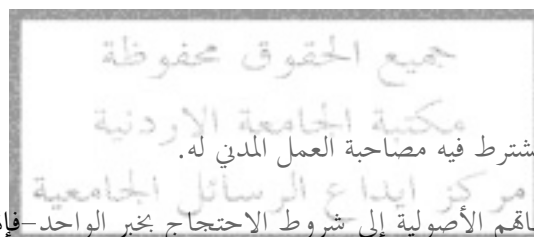 جميع الحقوق محفوظة
مكتبة الجامعة الاردنية
شترط فيه مصاحبة العمل المدني له.
مركز ايداع الرسائل الجامعية
الأصولية إلى شروط الاحتجاج بخبر الواحد-